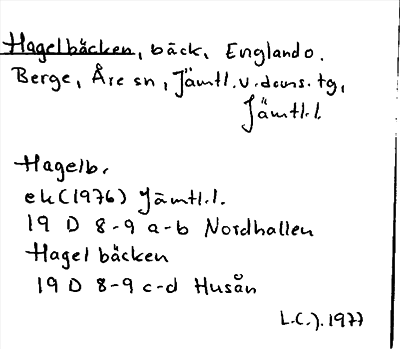 Hagelbäcken, bäck, Englando.
Berge, Åre sn, Jämtl.v.doms.tg,
Jämtl.l.
Hagelb.
ek (1976) Jämtl.l.
19 D 8-9 a-b Nordhallen
Hagelbäcken
19 D 8-9 c-d Husån
L.C.J. 1977